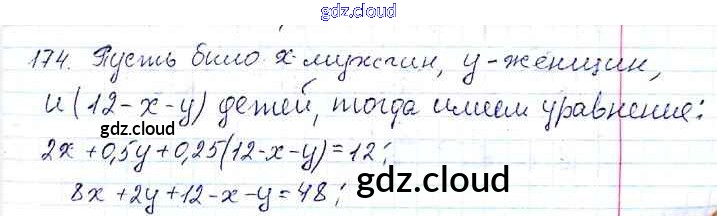 gdz.cloud
174. Пусть было x мужчин, y - женщин,
и (12-x-y) детей, тогда имеем уравнение:
gdz.cloud
2x+0,5y+0,25(12-x-y)=12;
8x+2y+12-x-y=48;
gdz.cloud